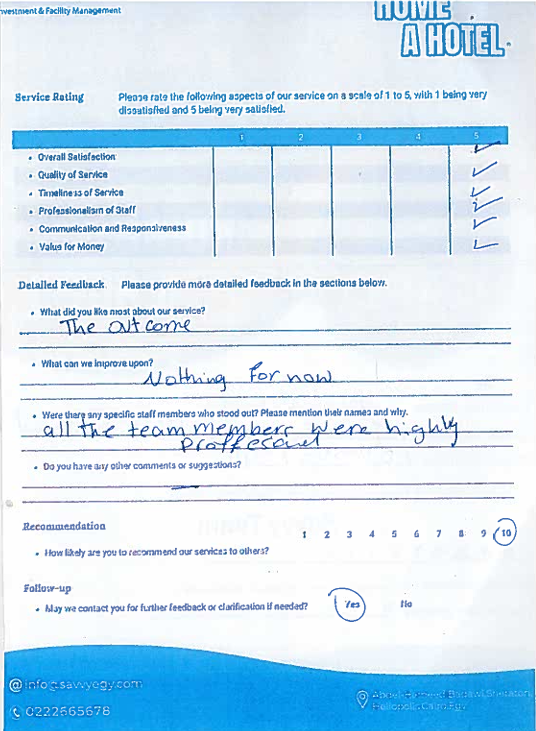 nvestment & Facility Management
HOME
A HOTEL
Service Rating
Please rate the following aspects of our service on a scale of 1 to 5, with 1 being very
dissatisfied and 5 being very satisfied.
1 2 3 4 5
• Overall Satisfaction ✓
• Quality of Service ✓
• Timeliness of Service ✓
• Professionalism of Staff ✓
• Communication and Responsiveness ✓
• Value for Money ✓
Detailed Feedback Please provide more detailed feedback in the sections below.
• What did you like most about our service?
The outcome
• What can we improve upon?
Nothing for now
• Were there any specific staff members who stood out? Please mention their names and why.
all the team members were highly
Proffesonal
• Do you have any other comments or suggestions?
—
Recommendation
1 2 3 4 5 6 7 8 9 10
• How likely are you to recommend our services to others?
Follow-up
• May we contact you for further feedback or clarification if needed? Yes No
@ info@savvyegy.com
0222665678
Abdel-Hameed Badawi, Sheraton,
Heliopolis, Cairo, Egy